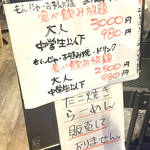 もんじゃ・お好み焼
食べ飲み放題
大人 3000円
中学生以下 980円
もんじゃ・お好み焼・ドリンク
食べ放題
大人 2500円
中学生以下 980円
たこ焼き
らーめん
販売して
おりません。